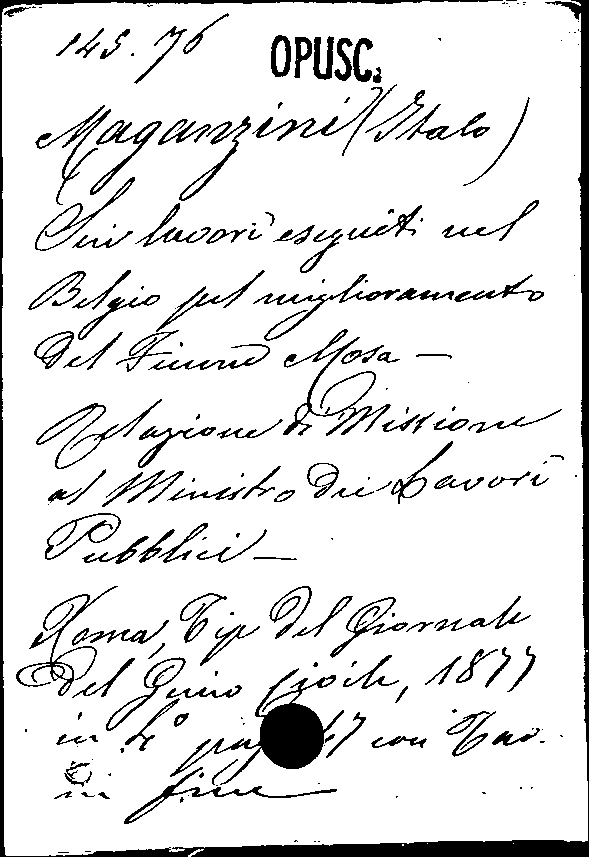 145.76 OPUSC.
Maganzini (Italo)
Sui lavori eseguiti nel
Belgio pel miglioramento
del Fiume Mosa —
Relazione di Missione
al Ministro dei Lavori
Pubblici —
Roma, Tip del Giornale
del Genio Civile, 1877
in 4° pag 47 con Tav.
in fine